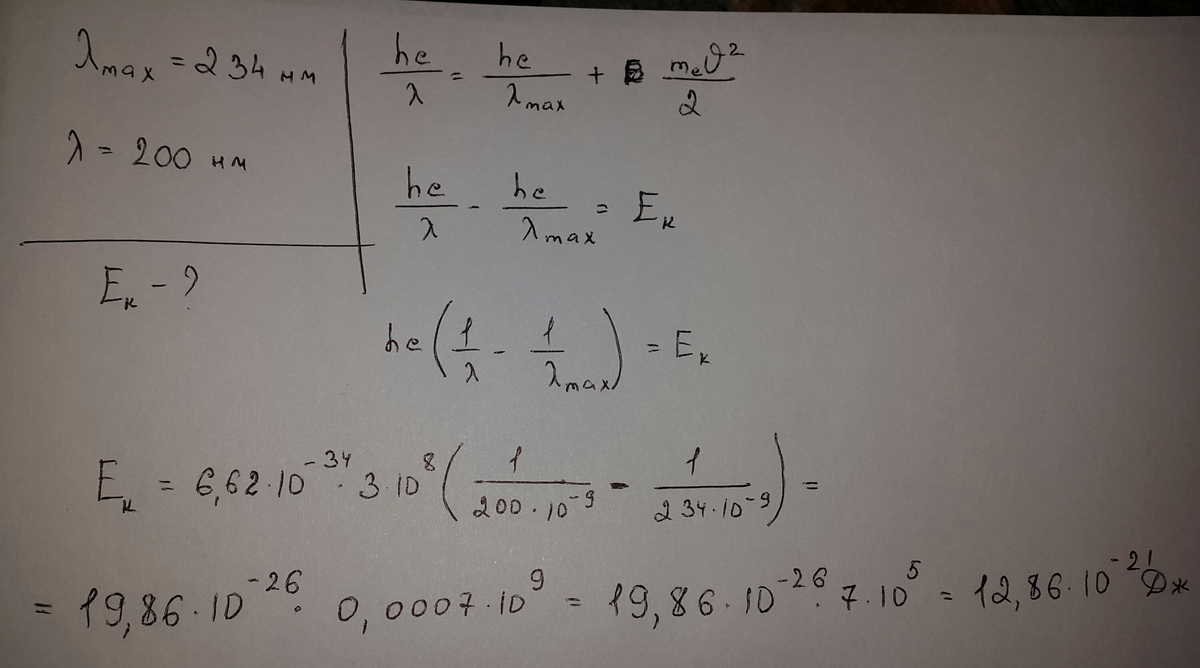 λmax = 234 нм
λ = 200 нм
Eк - ?
hc/λ = hc/λmax + mₑϑ²/2
hc/λ - hc/λmax = Eк
hc(1/λ - 1/λmax) = Eк
Eк = 6,62·10⁻³⁴·3·10⁸(1/200·10⁻⁹ - 1/234·10⁻⁹) =
= 19,86·10⁻²⁶·0,0007·10⁹ = 19,86·10⁻²⁶·7·10⁵ = 12,86·10⁻²¹Дж